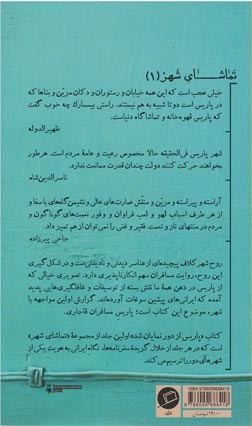 تماشای شهر (۱)
خیلی عجب است که این همه خیابان و رستوران و دکان مزیّن و بناها که
در پاریس است دو تا شبیه به هم نیستند. راستی بیسمارک چه خوب گفت
که پاریس قهوه‌خانه و تماشاگاه دنیاست.
ظهیرالدوله
شهر پاریس فی‌الحقیقه حالا مخصوص رعیت و عامهٔ مردم است. هرطور
بخواهند حرکت کنند دولت چندان قدرت ممانعت ندارد.
ناصرالدین‌شاه
آراسته و پیراسته و مزیّن و منقّش عمارت‌های عالی و نشیمن‌گاه‌های باصفا و
از هر طرف اسباب لهو و لعب فراوان و وفور نعمت‌های گوناگون و
مردم در منتهای ناز و نعمت. فقیر و غنی را نمی‌توان از هم تمیز داد.
حاجی پیرزاده
روح شهر کلاف پیچیده‌ای از عناصر دیدنی و نادیدنی‌ست و در شکل‌گیری
این روح، روایت مسافران سهم انکارناپذیری دارد. تصویری خیالی که
از پاریس در ذهن همهٔ ما نقش بسته از توصیفات و غافلگیری‌هایی پدید
آمده که ایرانی‌های پیشین سوغات آورده‌اند. گزارش اولین مواجهه با
شهر، موضوع این کتاب است؛ پاریس مسافران قاجاری.
کتاب «پاریس از دور نمایان شد» اولین جلد از مجموعهٔ «تماشای شهر»
است که در هر جلد از خلال گزیدهٔ سفرنامه‌ها، نگاه ایرانی به هویت یکی از
شهرهای دور را ترسیم می‌کند.